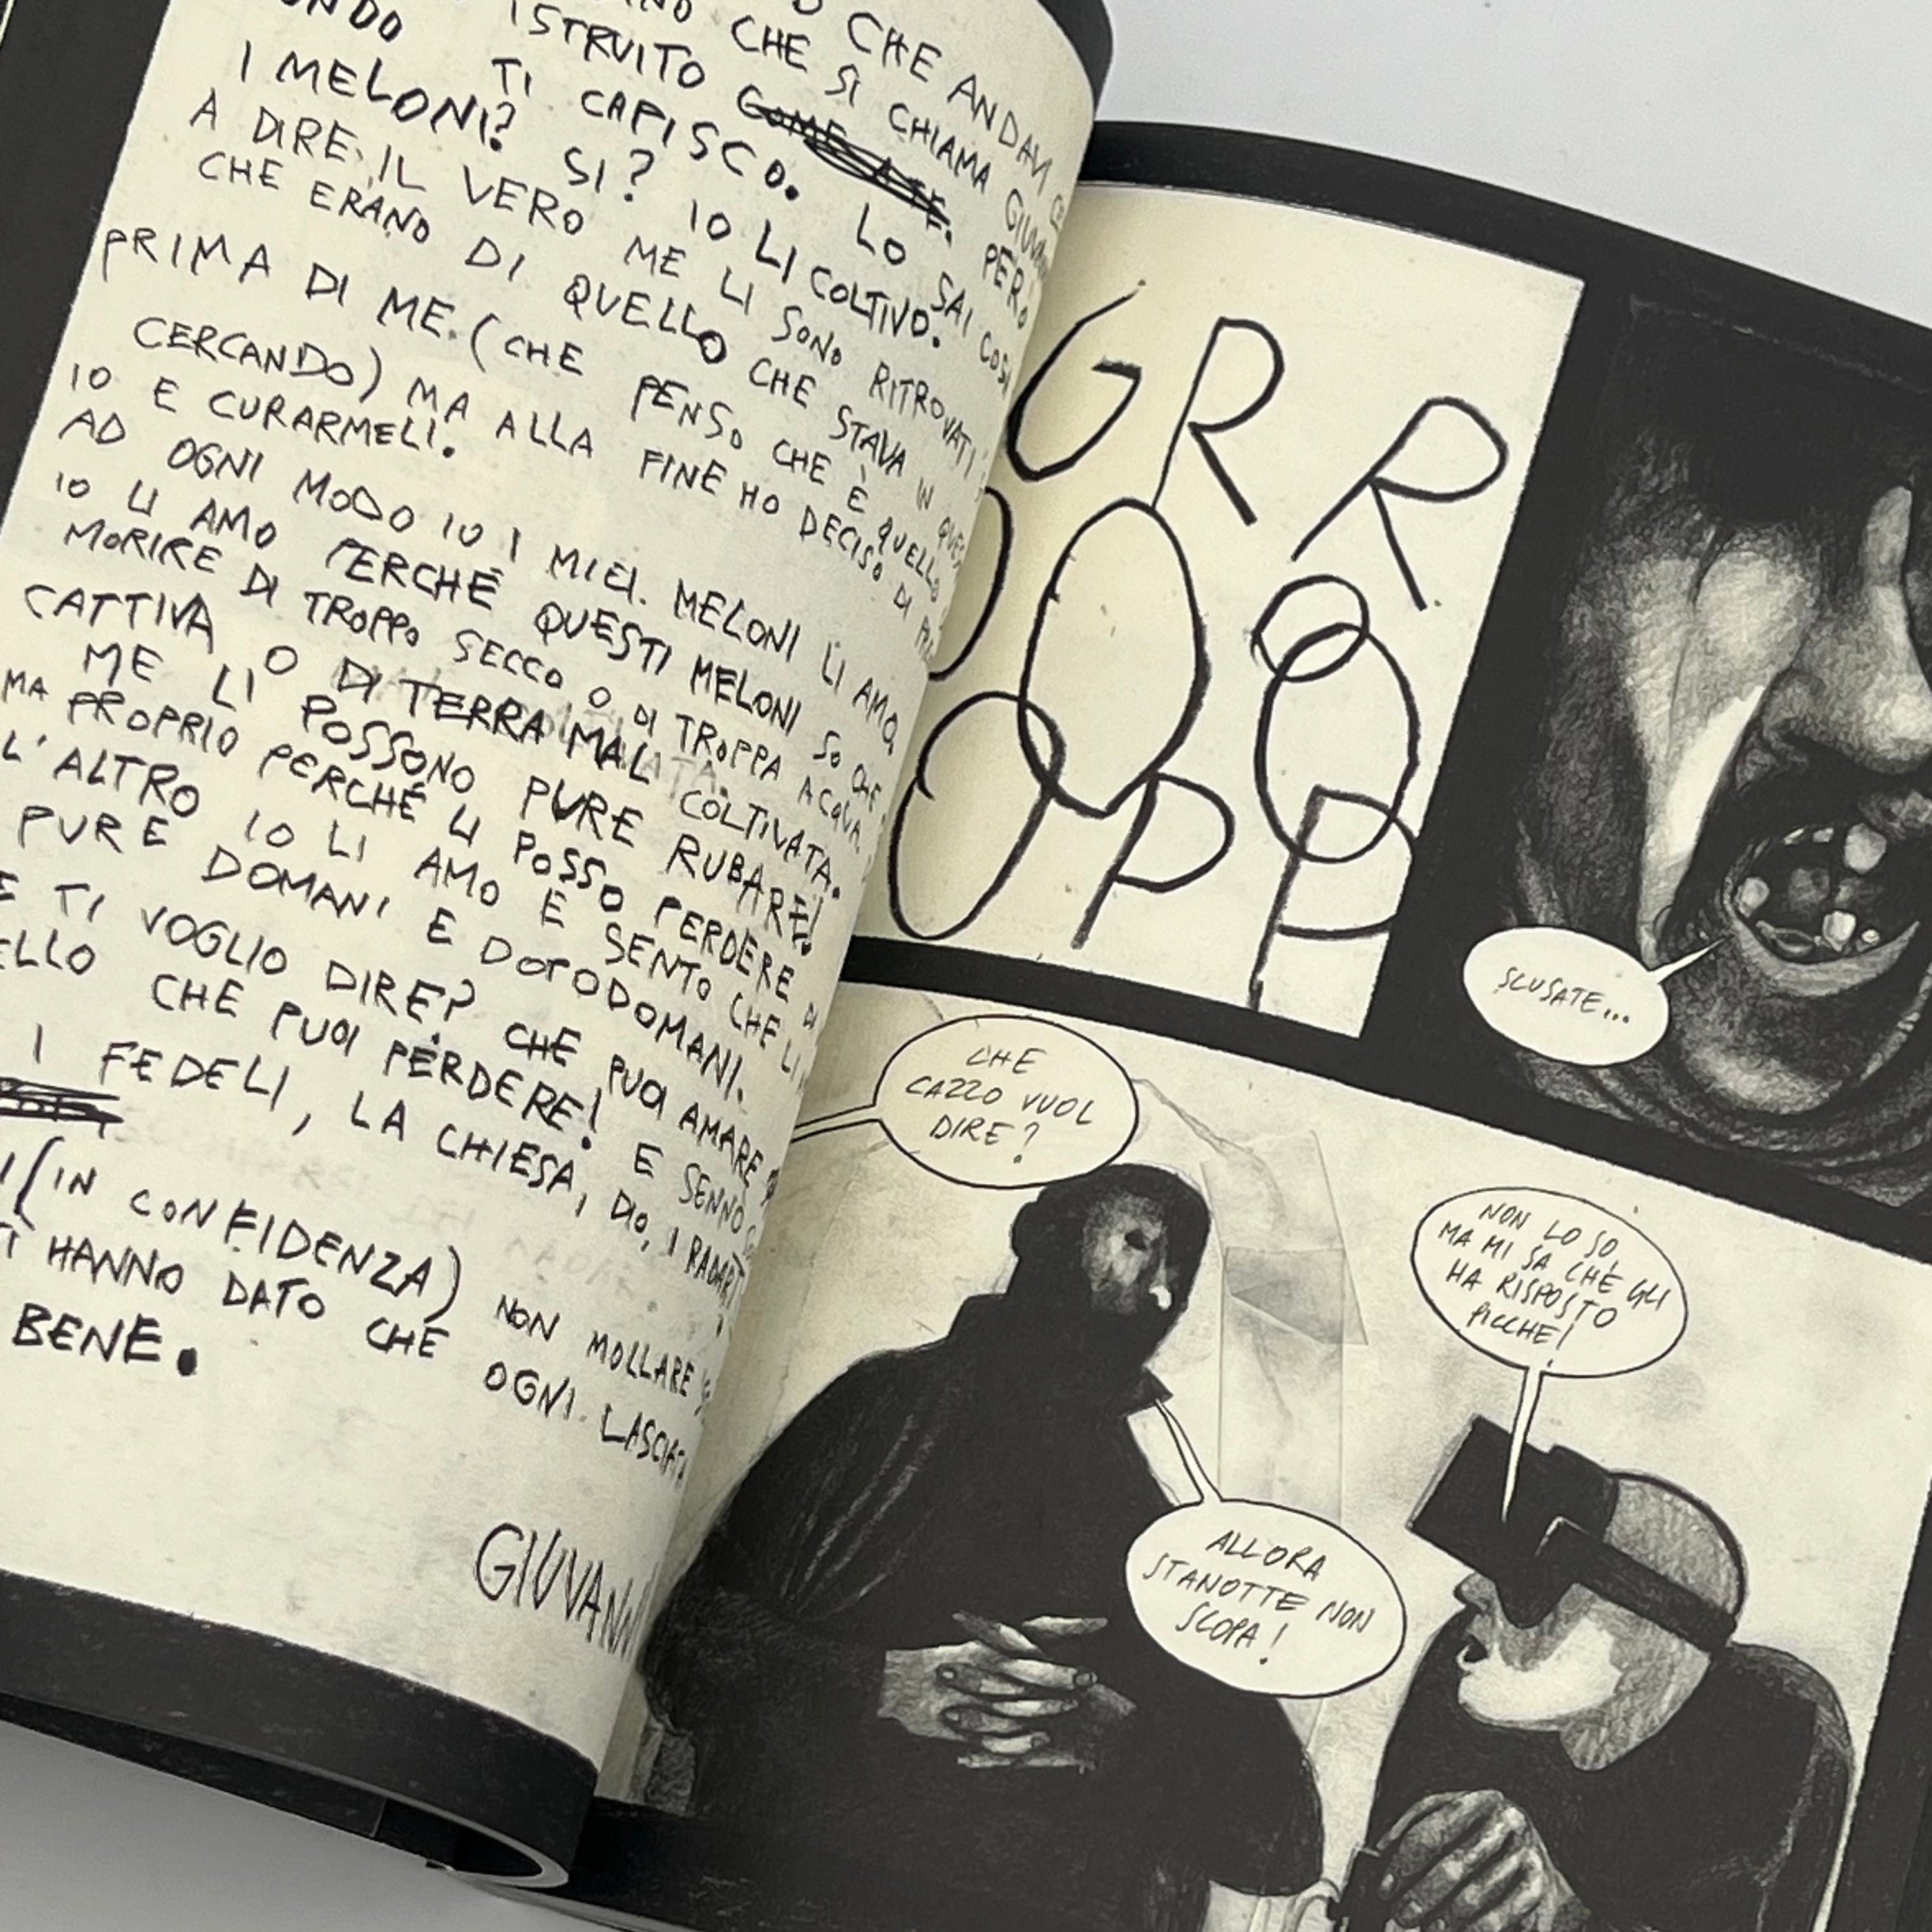 CHE ANDAVI
CHE SI CHIAMA GIUVANN
ISTRUITO COME A TE. PERÒ
TI CAPISCO. LO SAI COSI
I MELONI? SI? IO LI COLTIVO.
A DIRE IL VERO ME LI SONO RITROVATI
CHE ERANO DI QUELLO CHE STAVA IN
PRIMA DI ME. (CHE PENSO CHE È QUELLO
CERCANDO) MA ALLA FINE HO DECISO DI
IO E CURARMELI.
AD OGNI MODO IO I MIEI MELONI LI AMO,
IO LI AMO PERCHÉ QUESTI MELONI SO CHE
MORIRE DI TROPPO SECCO O DI TROPPA ACQUA
CATTIVA O DI TERRA MAL COLTIVATA.
ME LI POSSONO PURE RUBARE!
MA PROPRIO PERCHÉ LI POSSO PERDERE
L'ALTRO IO LI AMO E SENTO CHE LI
PURE DOMANI E DOPODOMANI.
TI VOGLIO DIRE? CHE PUOI AMARE
CHE PUOI PERDERE! E SENNÒ
I FEDELI, LA CHIESA, DIO, I
(IN CONFIDENZA) NON MOLLARE
TI HANNO DATO CHE OGNI LASCIATA
BENE.
GIUVANN
GRR
OO
OPP
SCUSATE...
CHE
CAZZO VUOL
DIRE?
NON LO SO,
MA MI SA CHE GLI
HA RISPOSTO
PICCHE!
ALLORA
STANOTTE NON
SCOPA!